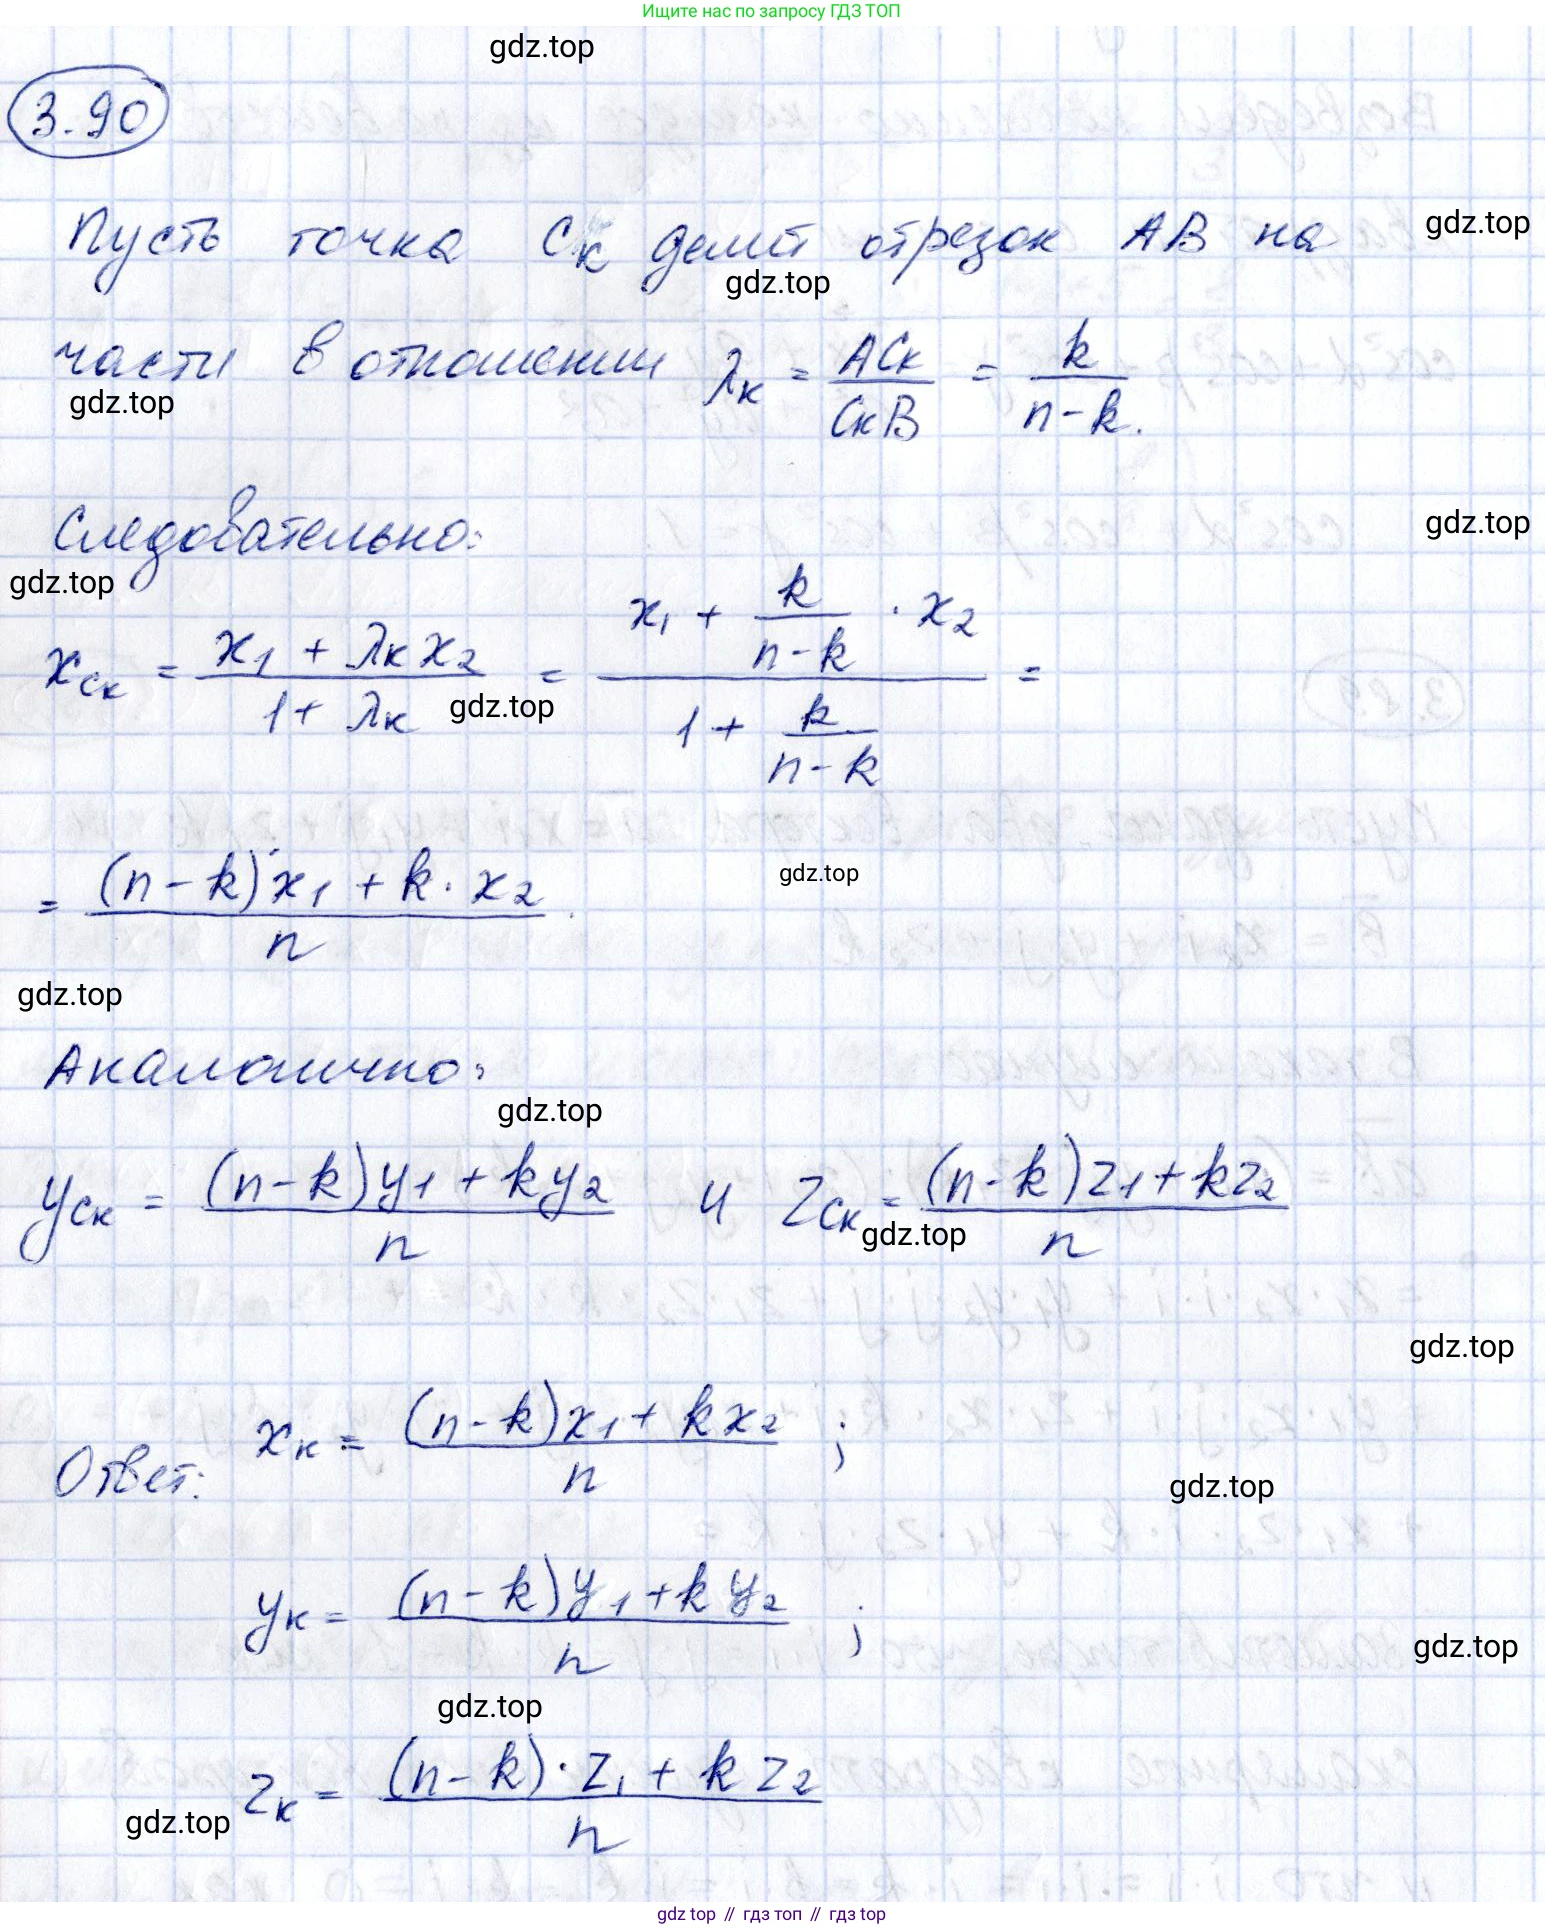 Ищите нас по запросу ГДЗ ТОП
gdz.top
3.90
Пусть точка Cк делит отрезок AB на
gdz.top
gdz.top
части в отношении λк = ACк/CкB = k/(n-k).
gdz.top
gdz.top
Следовательно:
gdz.top
xCк = (x1 + λк x2)/(1 + λк) = (x1 + k/(n-k) · x2)/(1 + k/(n-k)) =
gdz.top
= ((n-k)x1 + k · x2)/n.
gdz.top
gdz.top
Аналогично:
gdz.top
yCк = ((n-k)y1 + ky2)/n и zCк = ((n-k)z1 + kz2)/n
gdz.top
gdz.top
Ответ: xк = ((n-k)x1 + kx2)/n ;
gdz.top
yк = ((n-k)y1 + ky2)/n ;
gdz.top
gdz.top
zк = ((n-k)·z1 + kz2)/n
gdz.top
gdz top // гдз топ // гдз top